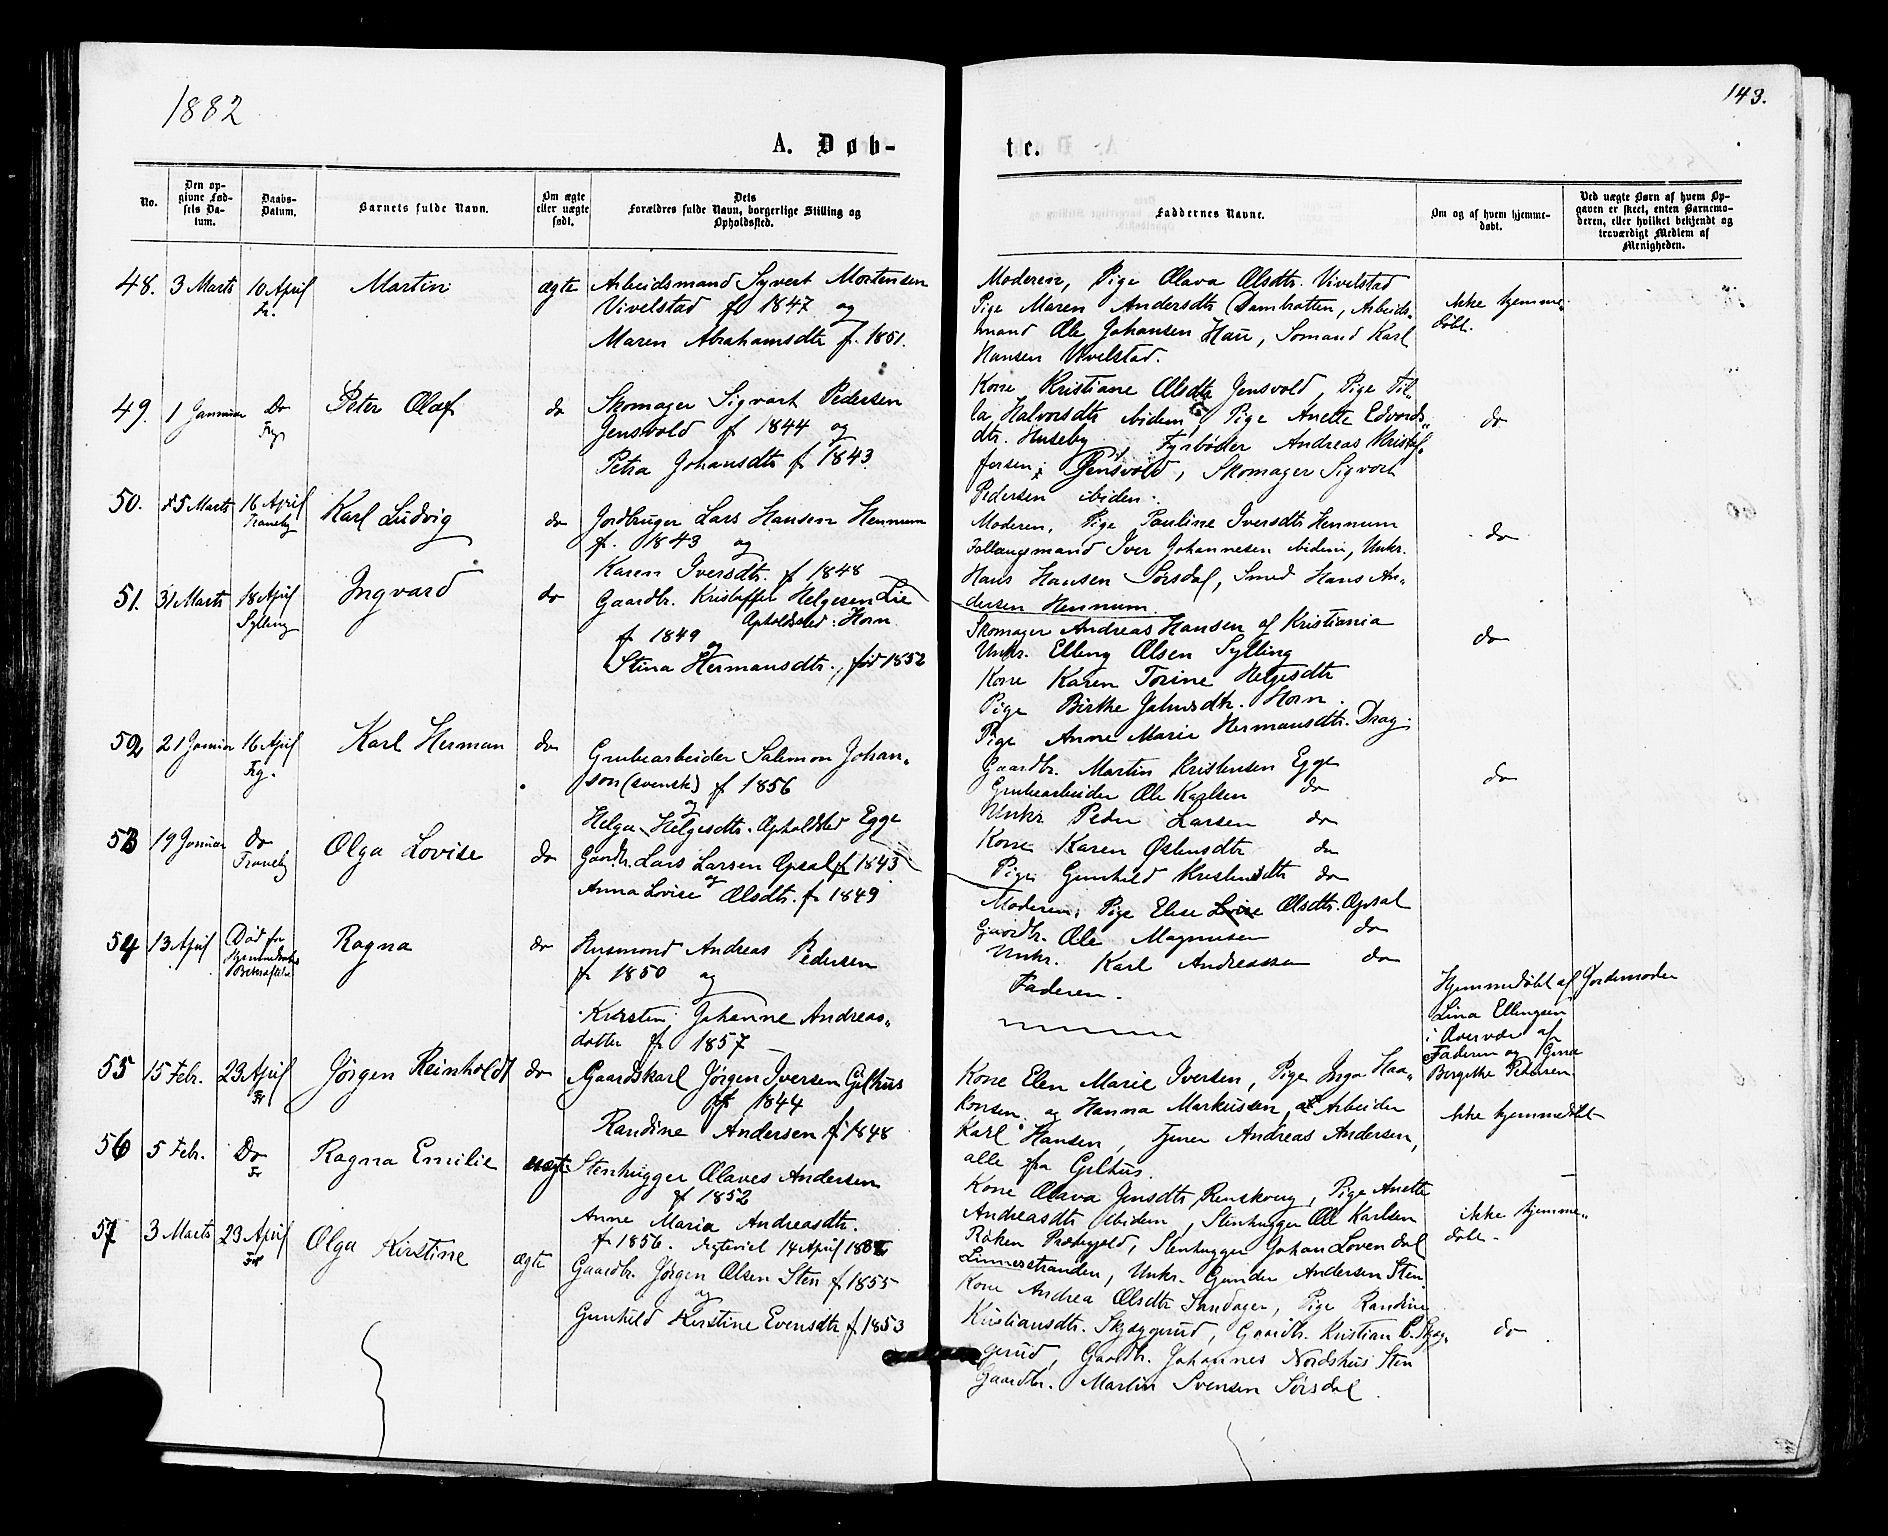 1882
143.
A. Døb-
te.
No.
Den op-
givne Fød-
sels Da-
tum.
Daabs-
Datum.
Barnets fulde Navn.
Om ægte
eller uægte
født.
Dets
Forældres fulde Navn, borgerlige Stilling og
Opholdssted.
Faddernes Navne.
Om og af hvem hjemme-
døbt.
Ved uægte Børn af hvem Op-
gaven er skeet, enten Barnemo-
deren, eller hvilket bekjendt og
troværdigt Medlem af
Menigheden.
48. 3 Marts 10 April Martin ægte Arbeidsmand Syvert Mortensen
Fr.
Vivelstad f 1847 og
Maren Abrahamsdtr f. 1851.
Moderen, Pige Olava Olsdtr. Vivelstad
Pige Maren Andersdtr Damhatten, Arbeids-
mand Ole Johansen Hau, Somand Karl
Hansen Vivelstad.
ikke hjemme-
døbt.
49. 1 Januar Do Peter Olaf do Skomager Sigvart Pedersen
Frg.
Jensvold f 1844 og
Petra Johansdtr f 1843
Kone Kristiane Olsdtr Jensvold, Pige Til-
la Halvorsdtr ibidem, Pige Anette Edvards-
dtr. Huseby, Fyrbøder Andreas Kristof-
fersen Jensvold, Skomager Sigvart
Pedersen ibidem.
do
50. 5 Marts 16 April Karl Ludvig do Jordbruger Lars Hansen Hennum
Traneby
f. 1843 og
Karen Iversdtr. f 1848
Moderen, Pige Pauline Iversdtr Hennum
Follaugsmand Iver Johannesen ibidem, Unkr.
Hans Hansen Sørsdal, Smed Hans An-
dersen Hennum.
do
51. 31 Marts 18 April Ingvard do Gaardbr. Kristoffer Helgesen Lie
Sylling
Opholdssted: Horn
f 1849 og
Stina Hermansdtr., født 1852
Skomager Andreas Hansen af Kristiania
Unkr. Elling Olsen Sylling
Kone Karen Torine Helgesdtr
Pige Birthe Johnsdtr. Horn.
Pige Anne Marie Hermansdtr. Drag.
do
52 21 Januar 16 April Karl Herman do Grubearbeider Salomon Johan-
Frg.
son (svensk) f 1856
og
Helga Helgesdtr. Opholdsted Egge
Gaardbr. Martin Kristensen Egge
Grubearbeider Ole Karlsen do
Unkr Peder Larsen do
Kone Karen Ostensdtr do
Pige Gunhild Kristensdtr do
do
53 19 Januar Do Olga Lovise do Gaardbr. Lars Larsen Opsal f 1843
Traneby
og
Anna Lovise Olsdtr. f 1849
Moderen, Pige Elise Lovise Olsdtr. Opsal
Gaardbr. Ole Magnusen do
Unkr. Karl Andreassen do
Faderen.
54 13 April Død før Ragna do Husmand Andreas Pedersen
Hjemmedaabs
Bekræftelse
f 1850 og
Kirsten Johanne Andreas-
datter f 1857
Hjemmedøbt af Jordemoder
Lina Ellingsen
i Overvær af
Faderen og Gina
Bergithe Pedersen
55 15 Febr. 23 April Jørgen Reinholdt do Gaardskarl Jørgen Iversen Gilhus
Fr
f 1844
Randine Andersen f 1848
Kone Elen Marie Iversen, Pige Inga Haa-
konsen og Hanna Markussen, Arbeider
Karl Hansen, Tjener Andreas Andersen,
alle fra Gilhus.
ikke hjemmedøbt
56 5 Febr. Do Ragna Emilie uægte Stenhugger Olaves Andersen
Fr
f 1852
Anne Maria Andreasdtr.
f 1856. Ægteviet 14 April 1882
Kone Olava Jensdtr Renskoug, Pige Anette
Andreasdtr ibidem, Stenhugger Ole Karlsen
Røken Præstegjeld, Stenhugger Johan Lovendal
Linnerstranden, Unkr. Gunder Andersen Sten
ikke hjemme-
døbt.
57 3 Marts 23 April Olga Kirstine ægte Gaardbr. Jørgen Olsen Sten f 1855
Fr
og
Gunhild Kirstine Evensdtr f 1853
Kone Andrea Olsdtr Sandager, Pige Randine
Kristiansdtr. Skjæggerud, Gaardbr. Kristian C. Skjæg-
gerud, Gaardbr. Johannes Nordshus Sten
Gaardbr. Martin Svensen Sørsdal.
do